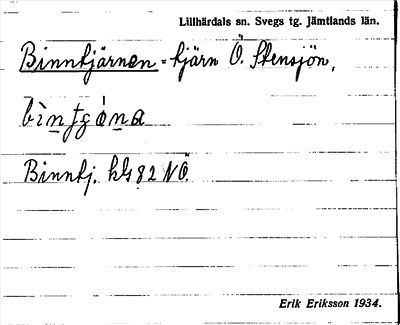 Lillhärdals sn. Svegs tg. Jämtlands län.
Binntjärnen = tjärn Ö. Stensjön,
Binntj. hls 82 NÖ
Erik Eriksson 1934.